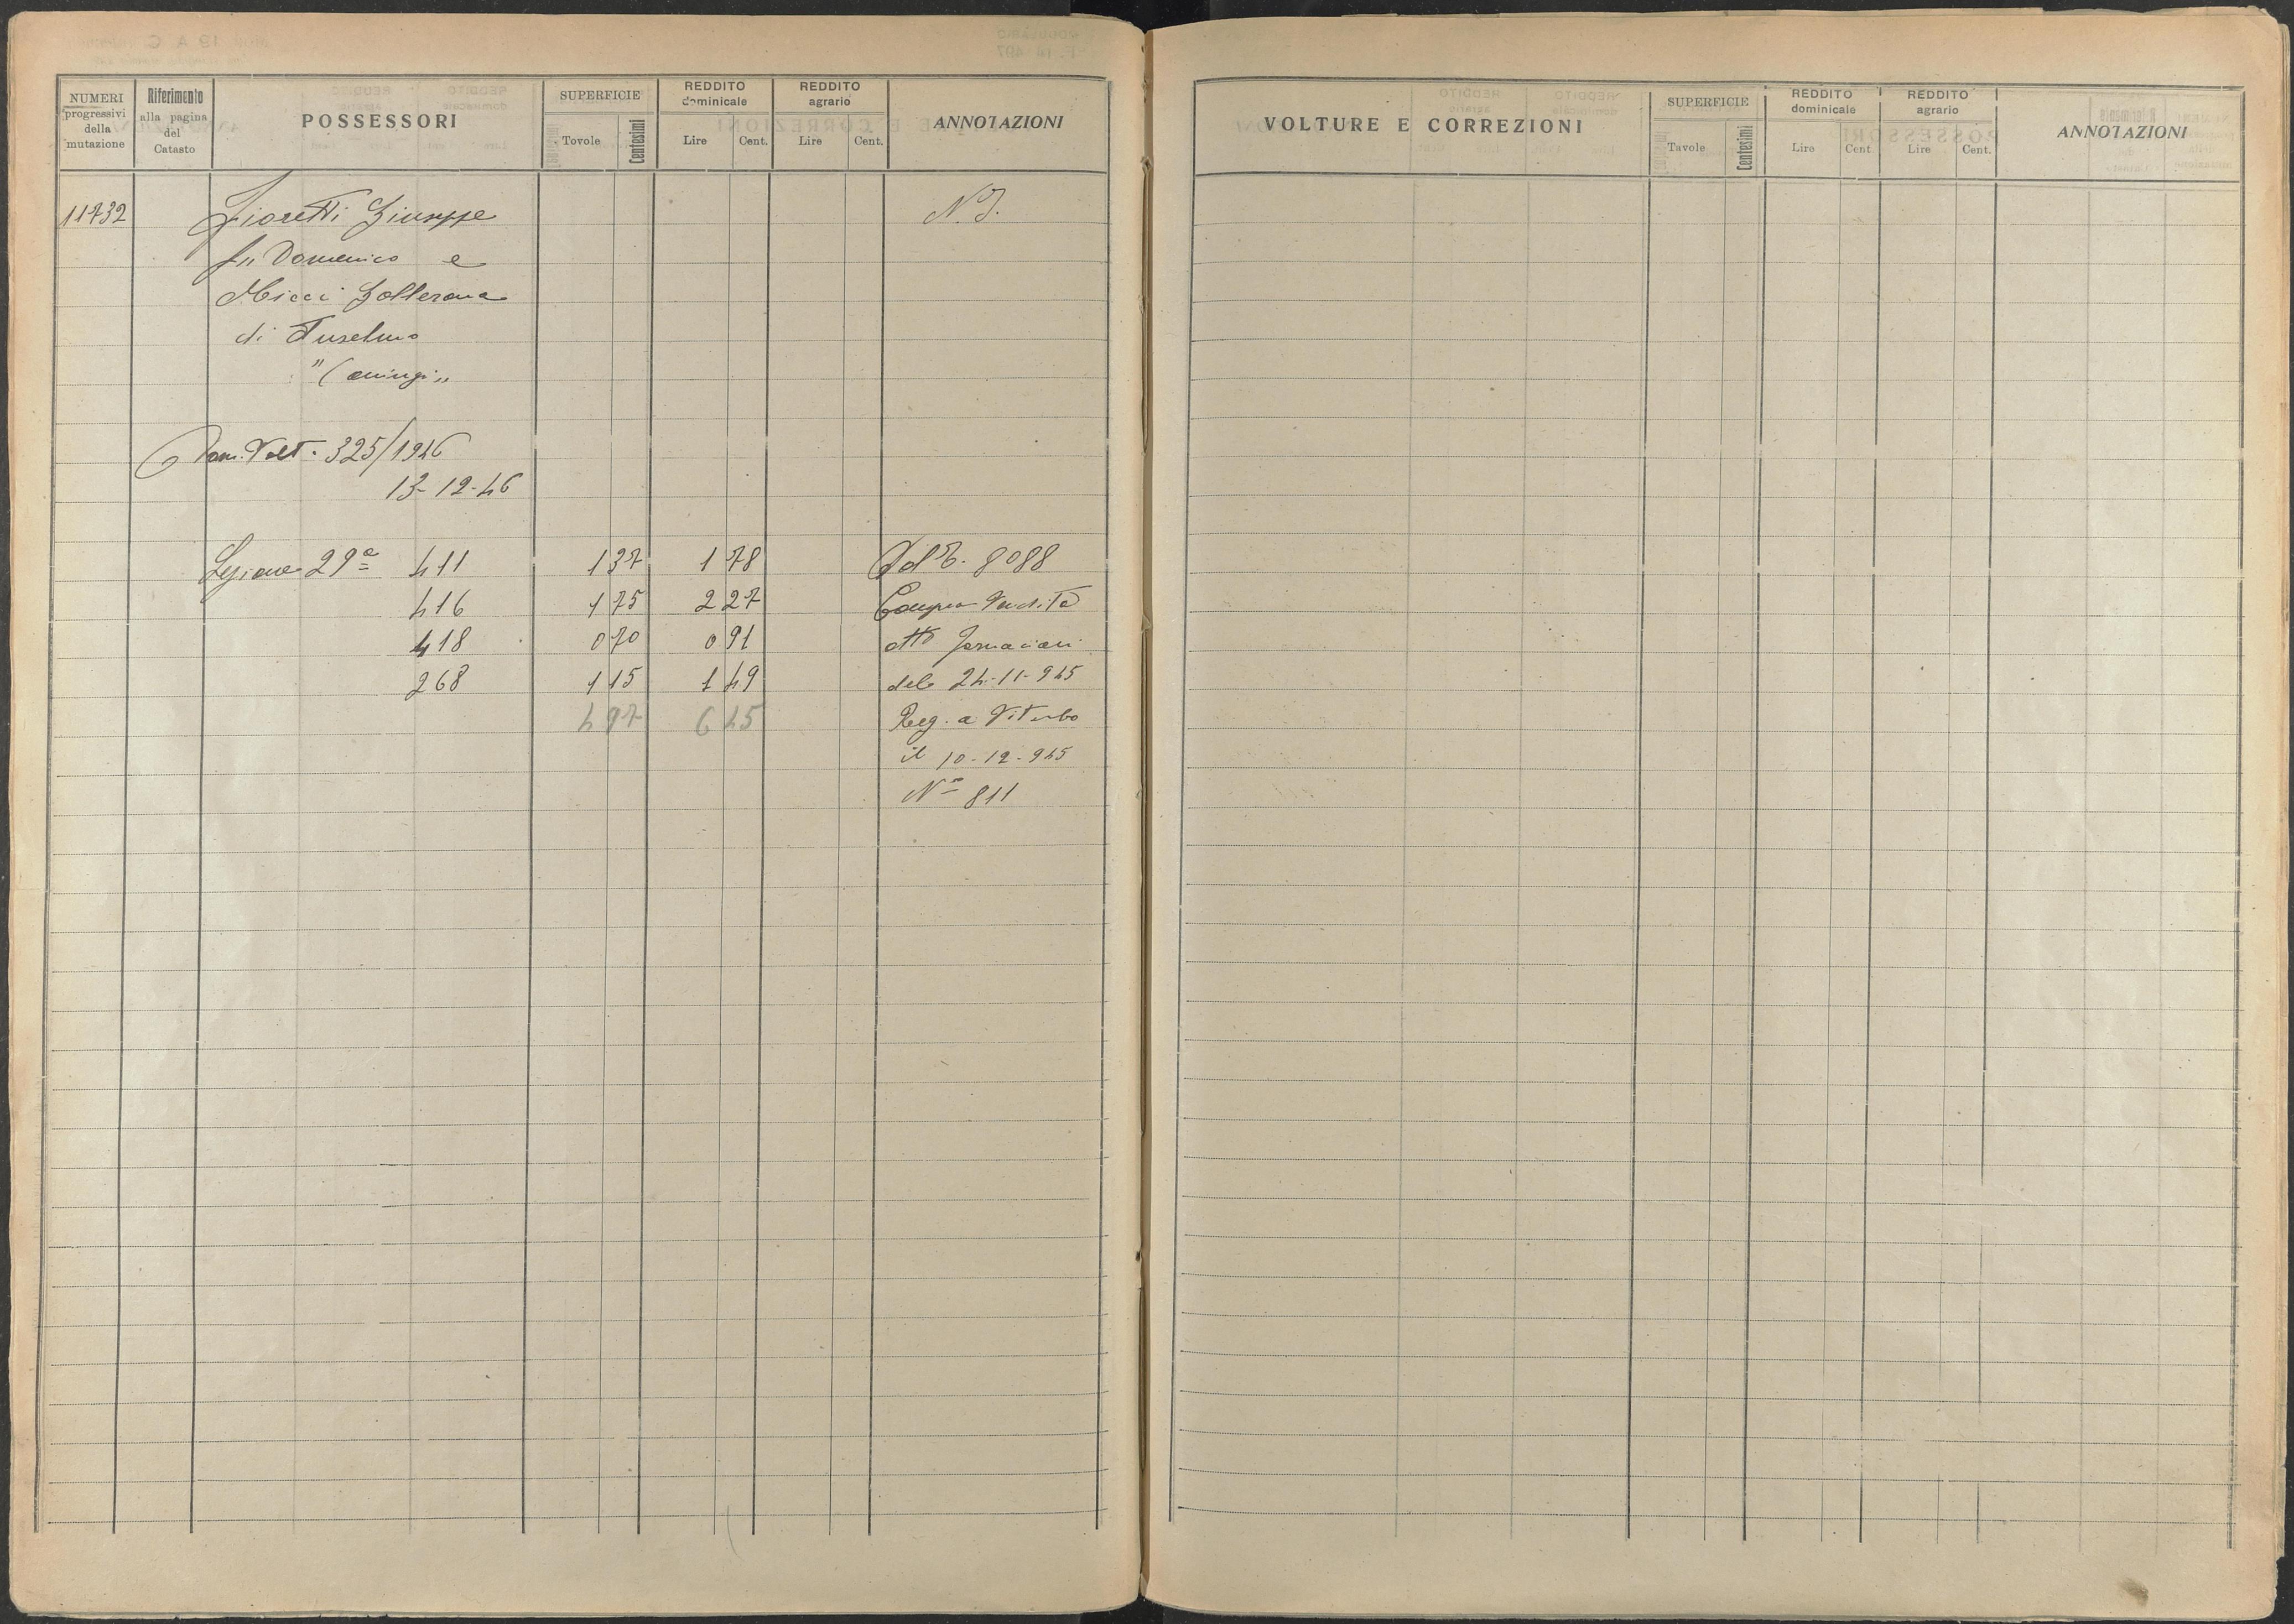 NUMERI progressivi della mutazione
Riferimento alla pagina del Catasto
POSSESSORI
SUPERFICIE
Tovole Centesimi
REDDITO dominicale
Lire Cent.
REDDITO agrario
Lire Cent.
ANNOTAZIONI
11732 Fioretti Giuseppe N. I.
fu Domenico e
Micci Sollerana
di Anselmo
"Coniugi"
Dom. Volt. 325/1946
13-12-46
Sezione 29ª 411 1 37 1 78 Od E. 8088
416 1 75 2 27 Compra Vendita
418 0 70 0 91 atto Fornaciari
268 1 15 1 49 del 24-11-945
4 97 6 45 Reg. a Viterbo
il 10-12-945
N° 811
VOLTURE E CORREZIONI
SUPERFICIE
Tavole Centesimi
REDDITO dominicale
Lire Cent
REDDITO agrario
Lire Cent.
ANNOTAZIONI